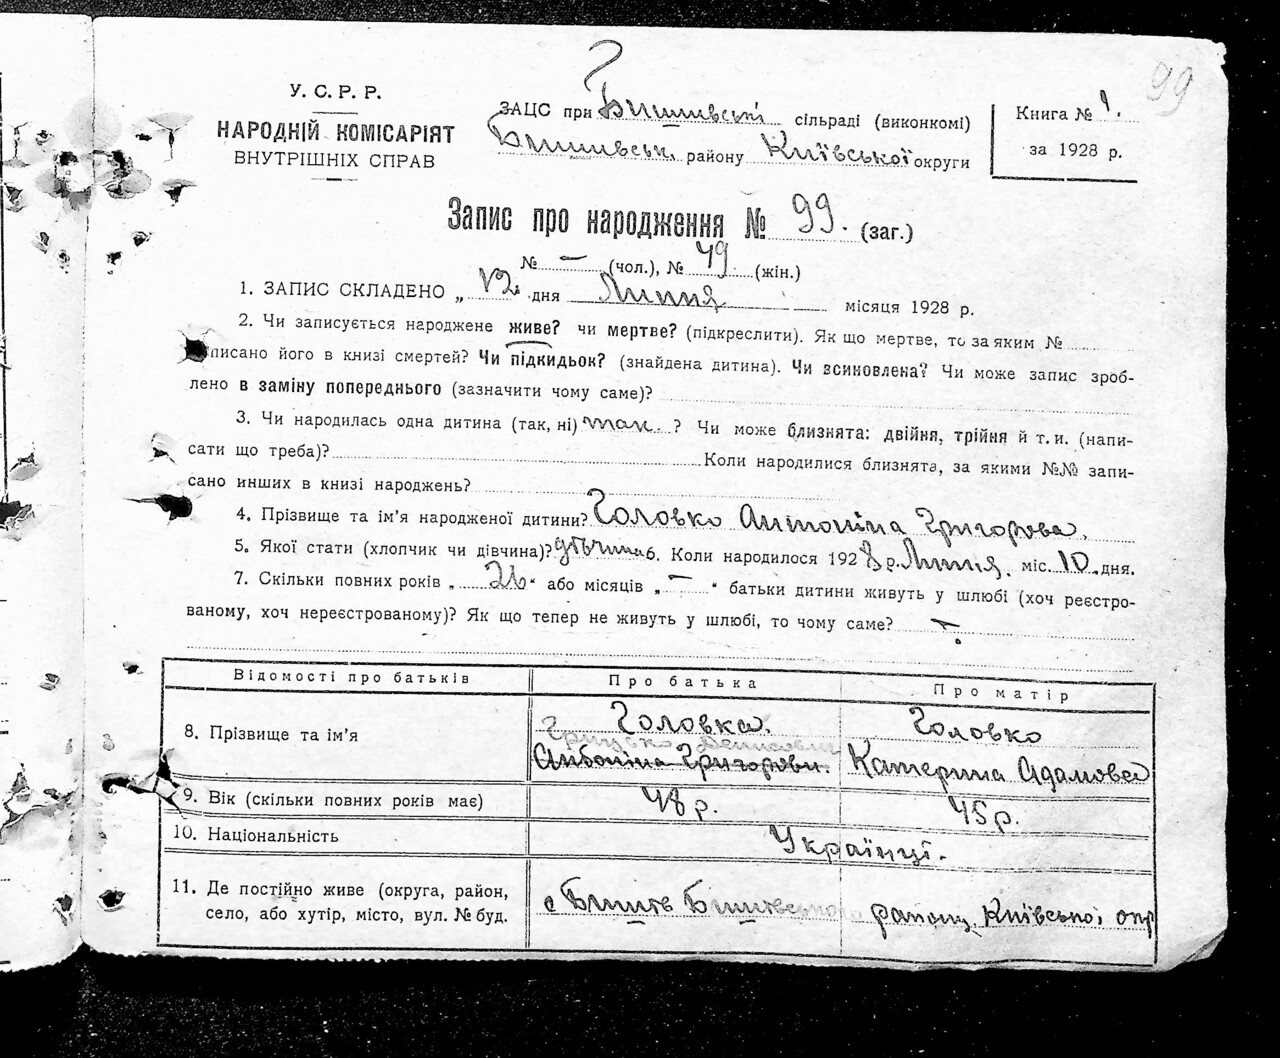 99
У. С. Р. Р.
НАРОДНІЙ КОМІСАРІЯТ
ВНУТРІШНІХ СПРАВ
ЗАЦС при Бишивській сільраді (виконкомі)
Бишивськ. району Київської округи
Книга № 1.
за 1928 р.
Запис про народження № 99. (заг.)
№ — (чол.), № 49 (жін.)
1. ЗАПИС СКЛАДЕНО „ 12 . дня Липня місяця 1928 р.
2. Чи записується народжене живе? чи мертве? (підкреслити). Як що мертве, то за яким №
писано його в книзі смертей? Чи підкидьок? (знайдена дитина). Чи всиновлена? Чи може запис зроб-
лено в заміну попереднього (зазначити чому саме)?
3. Чи народилась одна дитина (так, ні) так. ? Чи може близнята: двійня, трійня й т. и. (напи-
сати що треба)? Коли народилися близнята, за якими №№ запи-
сано инших в книзі народжень?
4. Прізвище та ім'я народженої дитини? Головко Антоніна Григорова.
5. Якої стати (хлопчик чи дівчина)? дівчина 6. Коли народилося 1928 р. Липня. міс. 10. дня.
7. Скільки повних років „ 26 “ або місяців „ — “ батьки дитини живуть у шлюбі (хоч реєстро-
ваному, хоч нереєстрованому)? Як що тепер не живуть у шлюбі, то чому саме?
Відомості про батьків Про батька Про матір
8. Прізвище та ім'я Головка. Головко
Грицько Денисович
Антоніна Григорови. Катерина Адамова
9. Вік (скільки повних років має) 48 р. 45 р.
10. Національність Українці.
11. Де постійно живе (округа, район,
село, або хутір, місто, вул. № буд. с Бишів Бишівського району, Київської окр